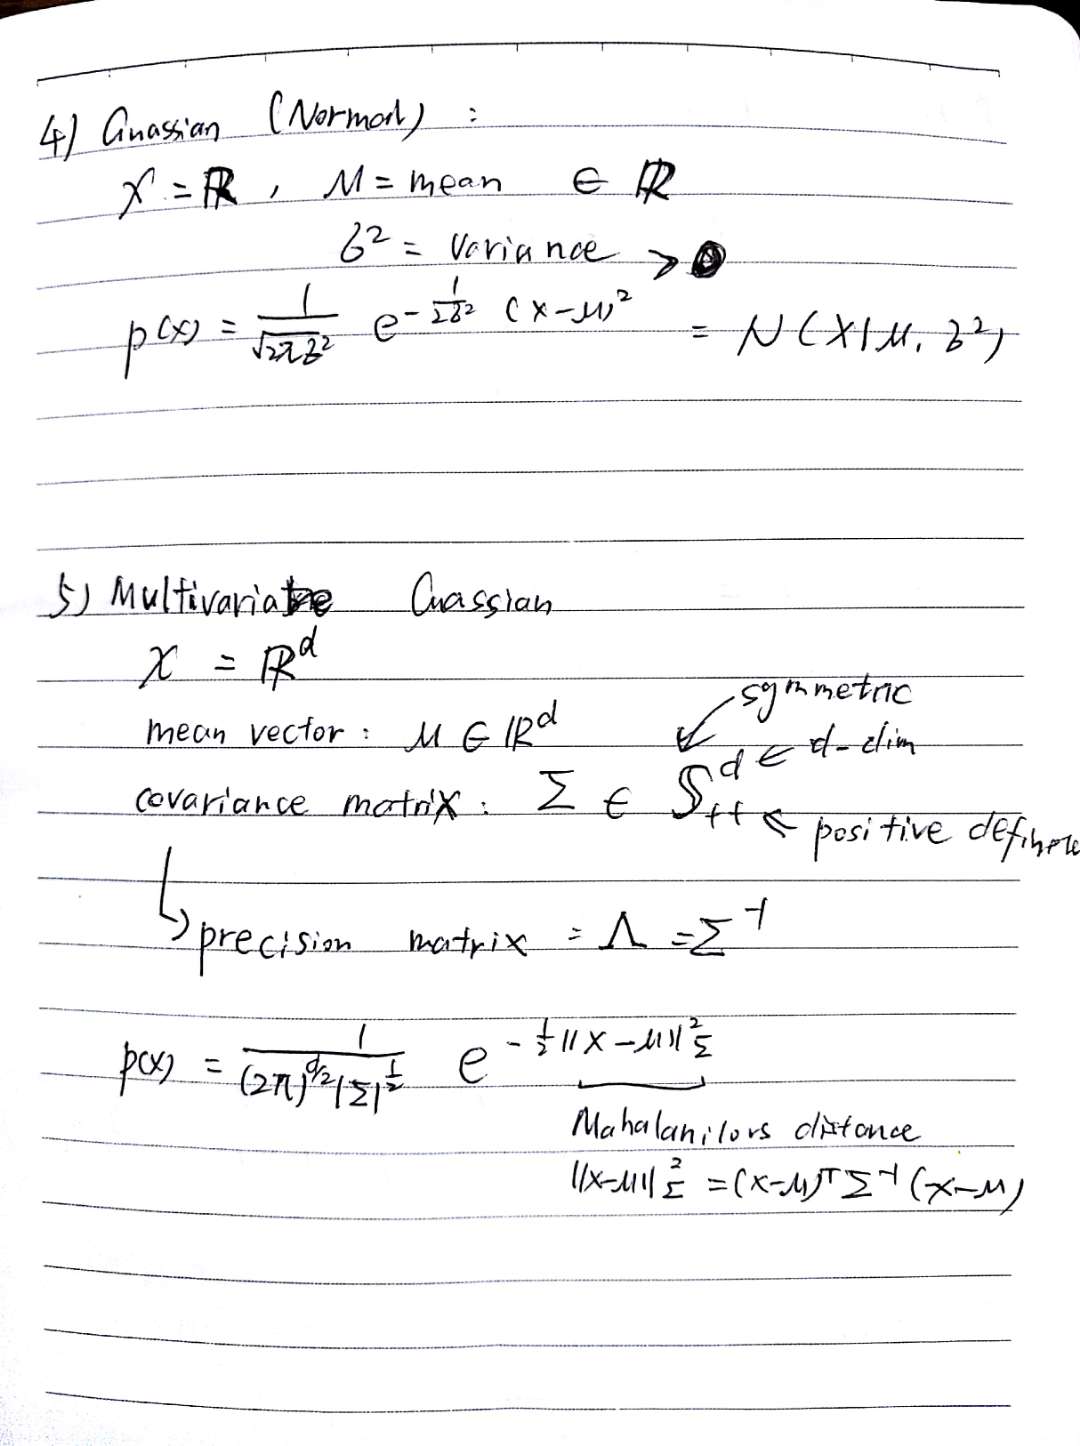 4) Guassian (Normal) :
X = ℝ , μ = mean ∈ ℝ
σ² = Variance > 0
p(x) = 1/√(2πσ²) e^(-1/(2σ²) (x-μ)²) = N(x|μ, σ²)
5) Multivariate Guassian
X = ℝ^d
symmetric
mean vector : μ ∈ ℝ^d
d ← d-dim
covariance matrix : Σ ∈ 𝕊^d_++ ← positive definite
↳ precision matrix = Λ = Σ^-1
p(x) = 1/((2π)^(d/2) |Σ|^(1/2)) e^(-1/2 ||x-μ||²_Σ)
distance
||x-μ||²_Σ = (x-μ)^T Σ^-1 (x-μ)